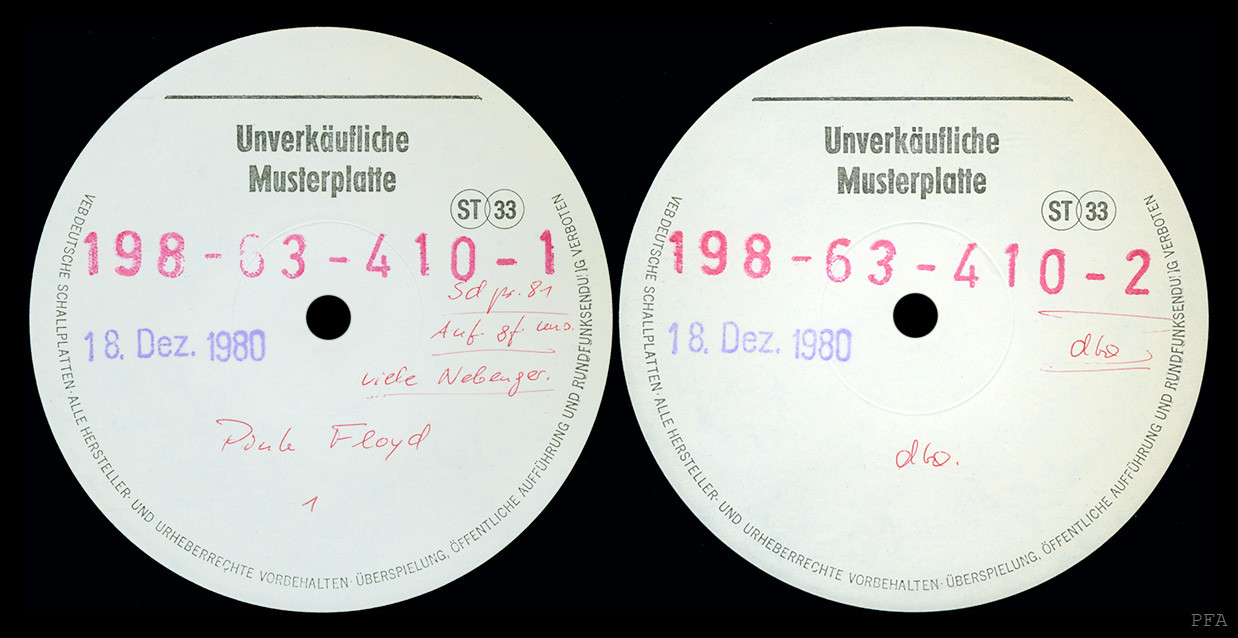 Unverkäufliche
Musterplatte
ST 33
198-63-410-1
18. Dez. 1980
viele Nebenger.
Pink Floyd
1
VEB DEUTSCHE SCHALLPLATTEN · ALLE HERSTELLER- UND URHEBERRECHTE VORBEHALTEN · ÜBERSPIELUNG, ÖFFENTLICHE AUFFÜHRUNG UND RUNDFUNKSENDUNG VERBOTEN
Unverkäufliche
Musterplatte
ST 33
198-63-410-2
18. Dez. 1980
dto
dto.
VEB DEUTSCHE SCHALLPLATTEN · ALLE HERSTELLER- UND URHEBERRECHTE VORBEHALTEN · ÜBERSPIELUNG, ÖFFENTLICHE AUFFÜHRUNG UND RUNDFUNKSENDUNG VERBOTEN
PFA